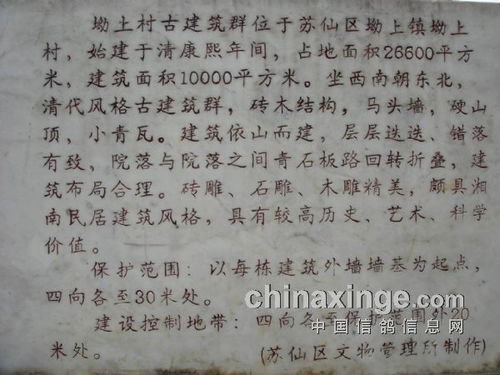 坳土村古建筑群位于苏仙区坳上镇坳上
村，始建于清康熙年间，占地面积26600平方
米，建筑面积10000平方米。坐西南朝东北，
清代风格古建筑群，砖木结构，马头墙，硬山
顶，小青瓦。建筑依山而建，层层迭迭、错落
有致，院落与院落之间青石板路回转折叠，建
筑布局合理。砖雕、石雕、木雕精美，颇具湘
南民居建筑风格，具有较高历史、艺术、科学
价值。
保护范围：以每栋建筑外墙墙基为起点，
四向各至30米处。
建设控制地带：四向各至保护范围外20
米处。
(苏仙区文物管理所制作)
chinaxinge.com
中国信鸽信息网